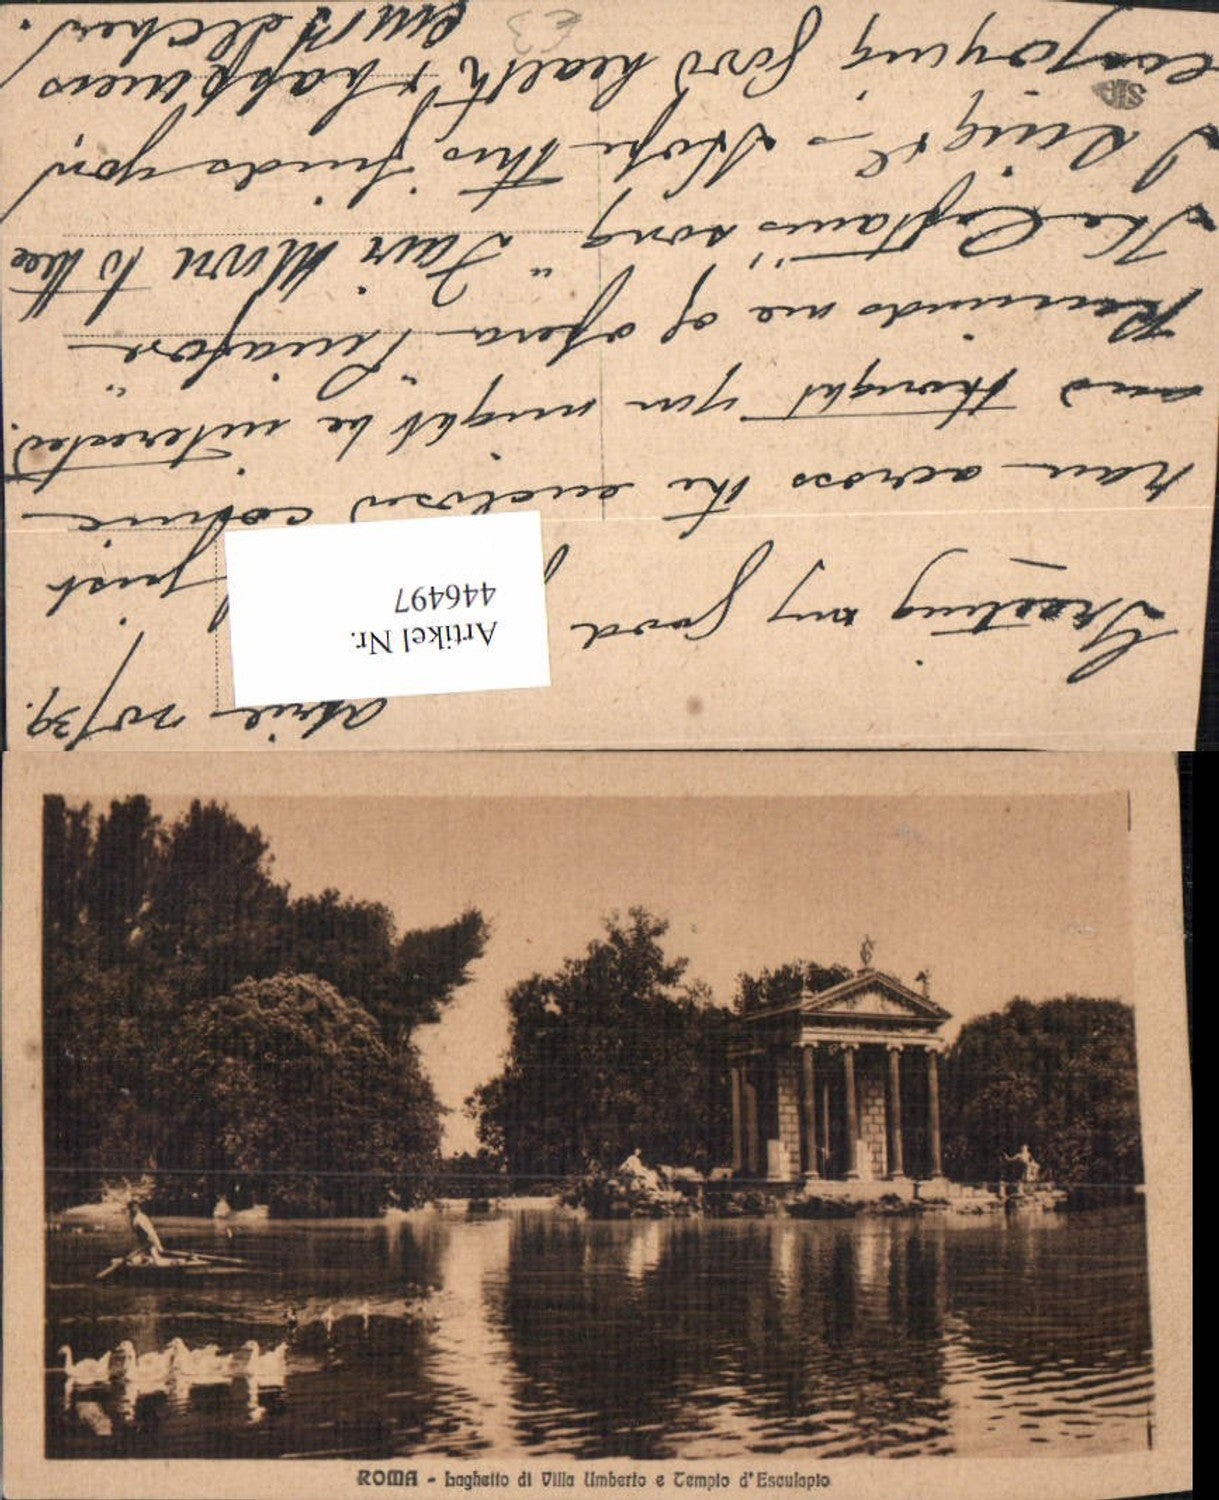 April 20/39.
Greeting my good just
ran across the enclosed comic
and thought you might be interested.
Reminds me of opera "Pinafore"
The Captain's song "Fair Moon to thee
I Sing" – Hope this finds you
enjoying good health & happiness
Artikel Nr.
446497
ROMA - Laghetto di Villa Umberto e Tempio d'Esculapio